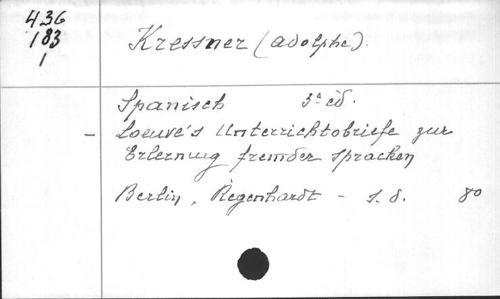 436
183
1
Kressner (Adolphe).
Spanisch 3e éd.
- Loewe's Unterrichtsbriefe zur
Erlernung fremder Sprachen
Berlin, Regenhardt - s. d. 8o